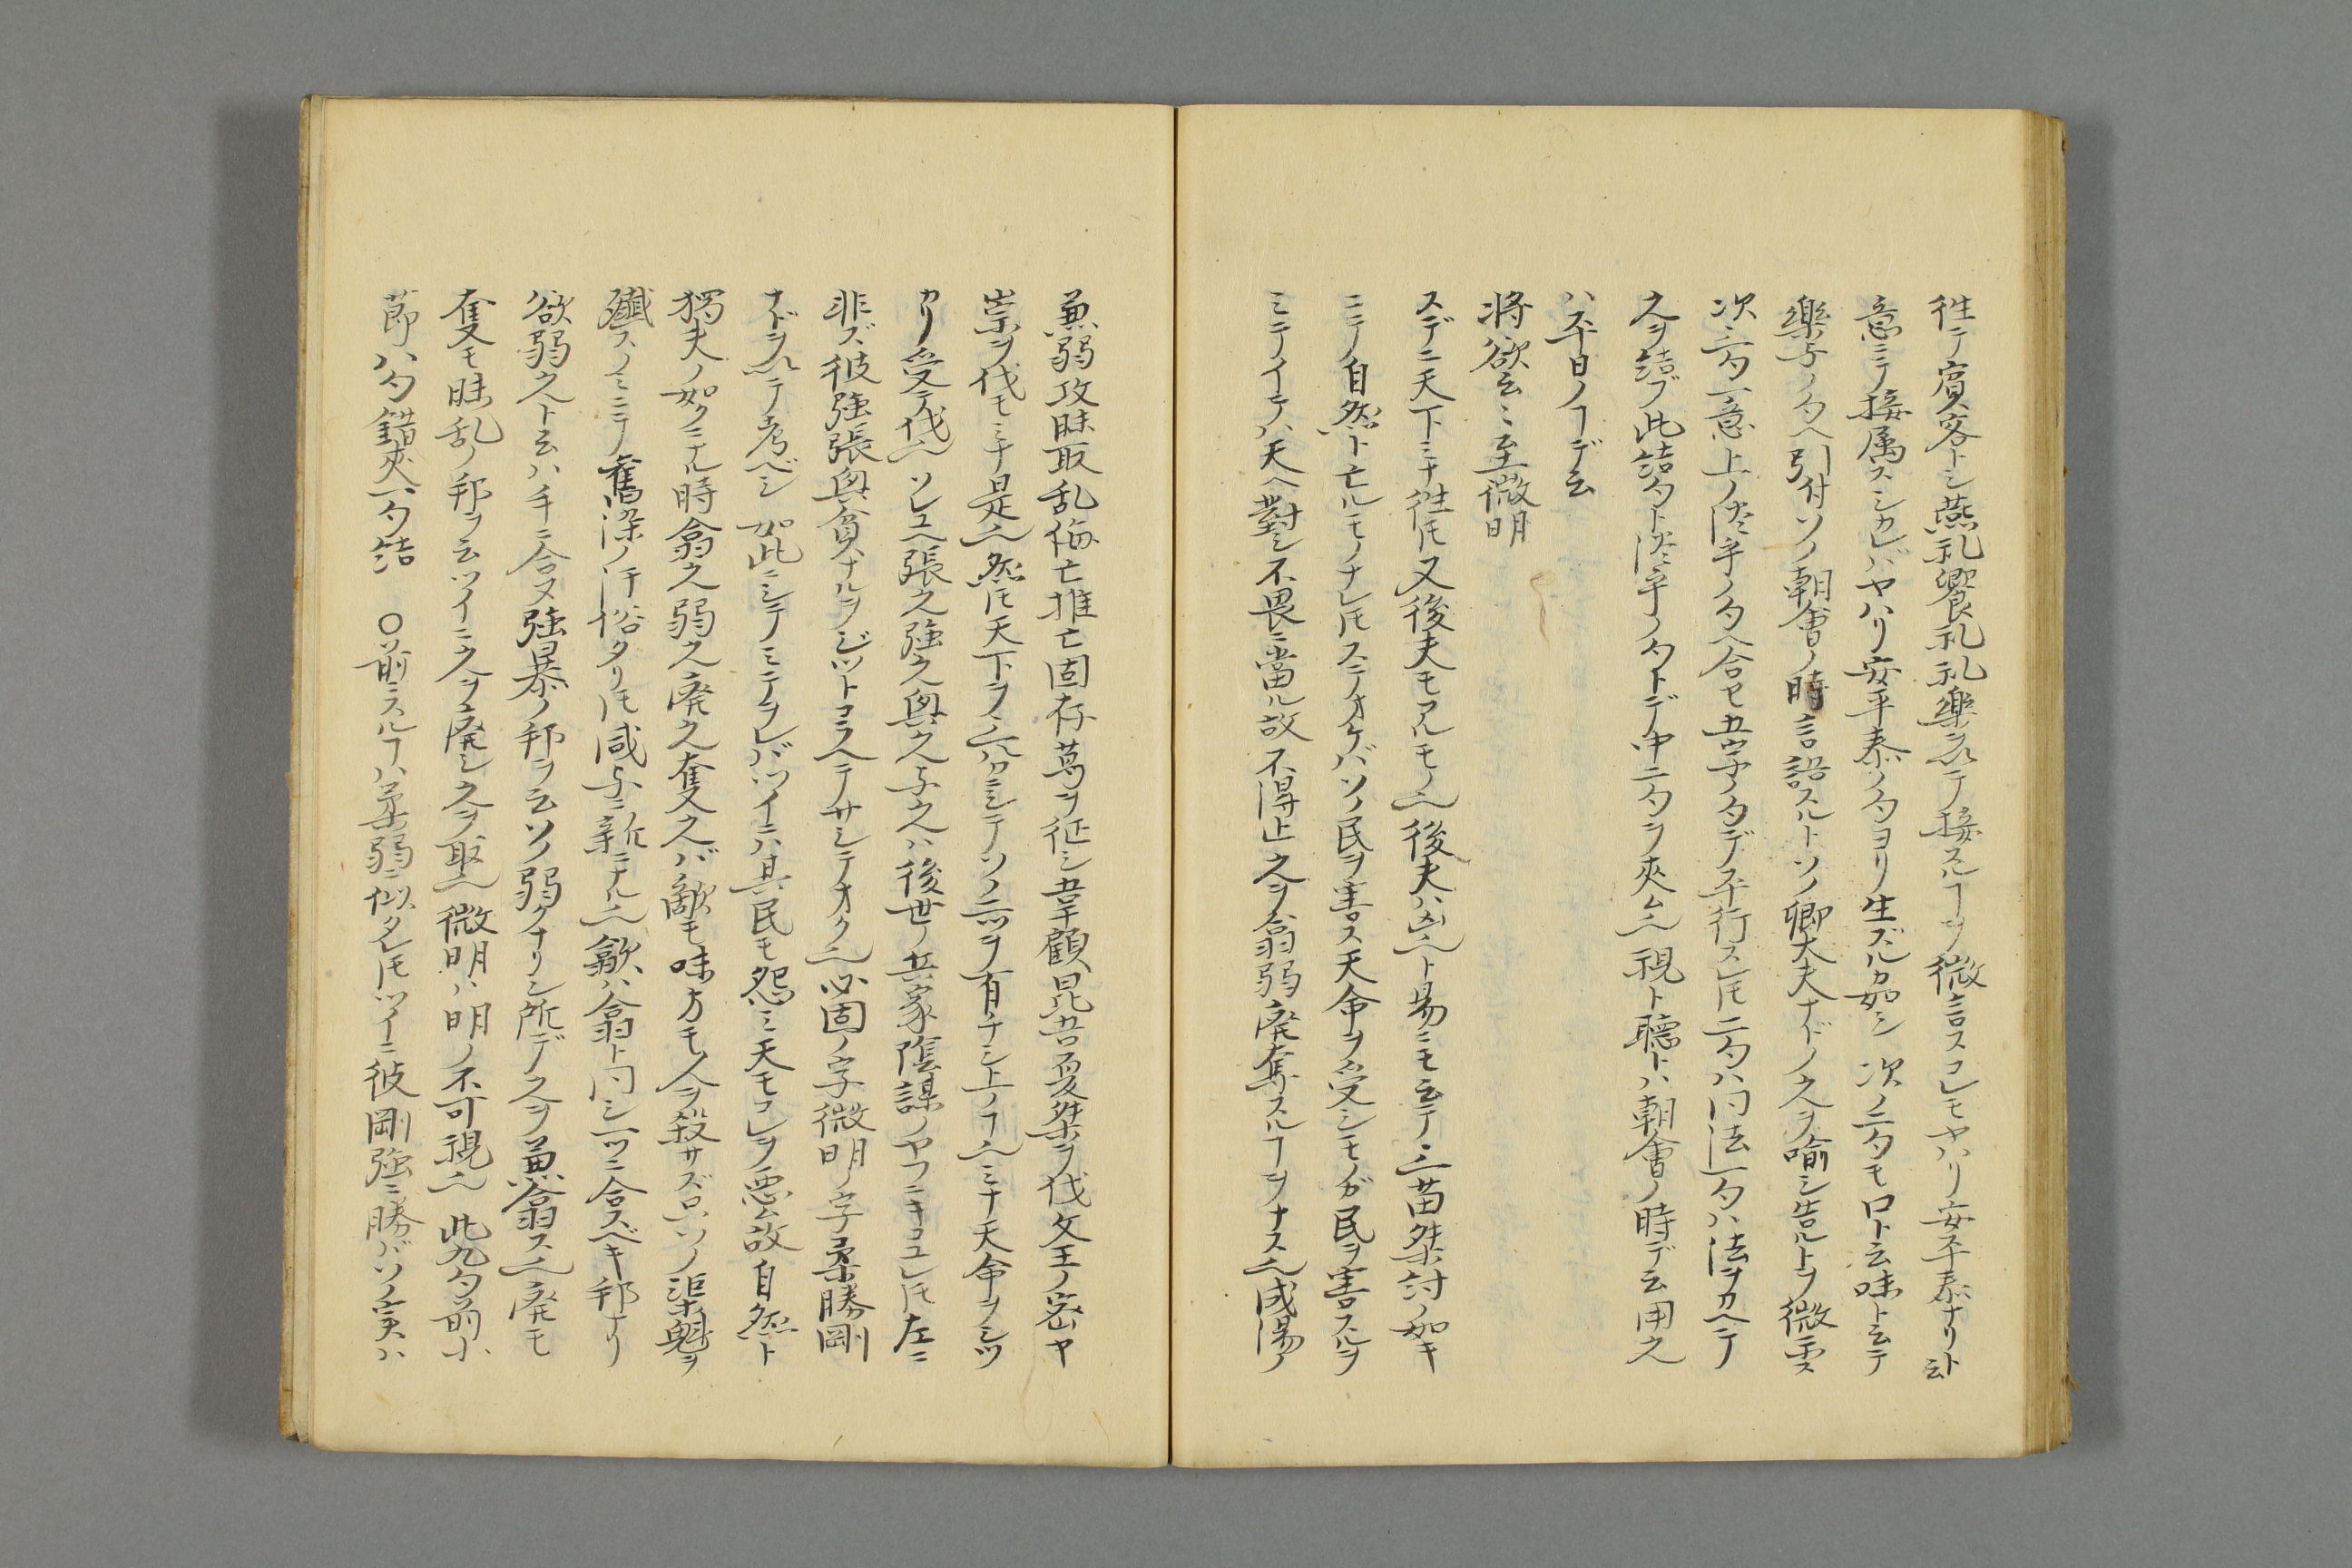 往テ賓客トシ燕礼饗礼礼樂ニテ接スルヿヲ微言スコレモヤハリ安平泰ナリト云
意ニテ接属スシカレバヤハリ安平泰ノ句ヨリ生ズルカ如シ 次ノ二句モ口ト云味ト云テ
樂与ノ句ヘ引付ソノ朝會ノ時言語スルトソノ卿大夫ナドノ之ヲ喩シ告ルトヲ微言ス
次三句一意上ノ淡乎ノ句ヘ合セ五字ノ句デ平行スレ𪜈二句ハ同法一句ハ法ヲカヘテ
之ヲ結ブ此結句ト淡乎ノ句トデ中二句ヲ夾ム也視ト聴トハ朝會ノ時デ云用之
ハ平日ノヿデ云
將欲云々至微明
スデニ天下ミナ往𪜈又後夫モアルモノ也後夫ハ凶也ト易ニモ云テ三苗桀討ノ如キ
ニテ自然ト亡ルモノナレ𪜈ステオケバソノ民ヲ害ス天命ヲ受シモノガ民ヲ害スルヲ
ミテイテハ天ヘ對シ不畏ニ當ル故不得止之ヲ翕弱廃奪スルヿヲナス也成湯ノ
兼弱攻昧取乱侮亡推亡固存葛ヲ征シ韋顧昆吾夏桀ヲ伐文王ノ密ヤ
崇ヲ伐モミナ是也然𪜈天下ヲ三分シテソノ二ツヲ有チシ上ノヿ也ミナ天命ヲシツ
カリ受テ伐也ソレユヘ張之強之與之与之ハ後世ノ兵家陰謀ノヤフニキコユレ𪜈左ニ
非ズ彼強張與貪ナルヲジツトコラヘテサシテオク也必固ノ字微明ノ字柔勝剛
ナドヲ以テ考ベシ 如此ニシテミテヲレバツイニハ其民モ怨ミ天モコレヲ悪ム故自然ト
獨夫ノ如クニナル時翕之弱之廃之奪之バ敵モ味方モ人ヲ殺サズ只ソノ渠魁ヲ
殲スノミニテ舊染ノ汙俗タリ𪜈咸与ニ新ニナル也歙ハ翕ト同シ一ツニ合スベキ邦ナリ
欲弱之ト云ハ手ニ合ヌ強暴ノ邦ヲ云ソノ弱クナリシ所デ之ヲ兼翕ス也廃モ
奪モ昧乱ノ邦ヲ云ツイニ之ヲ廃シ之ヲ取也微明ハ明ノ不可視也 此九句前小
節 八句錯夾一句結 〇前ニスルヿハ柔弱ニ似タレ𪜈ツイニ彼剛強ニ勝バソノ実ハ